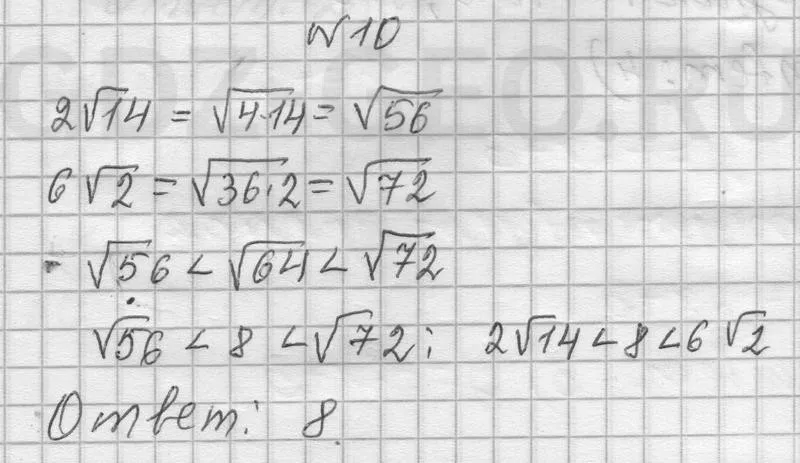 №10
2√14 = √4·14 = √56
6√2 = √36·2 = √72
√56 < √64 < √72
√56 < 8 < √72; 2√14 < 8 < 6√2
Ответ: 8.